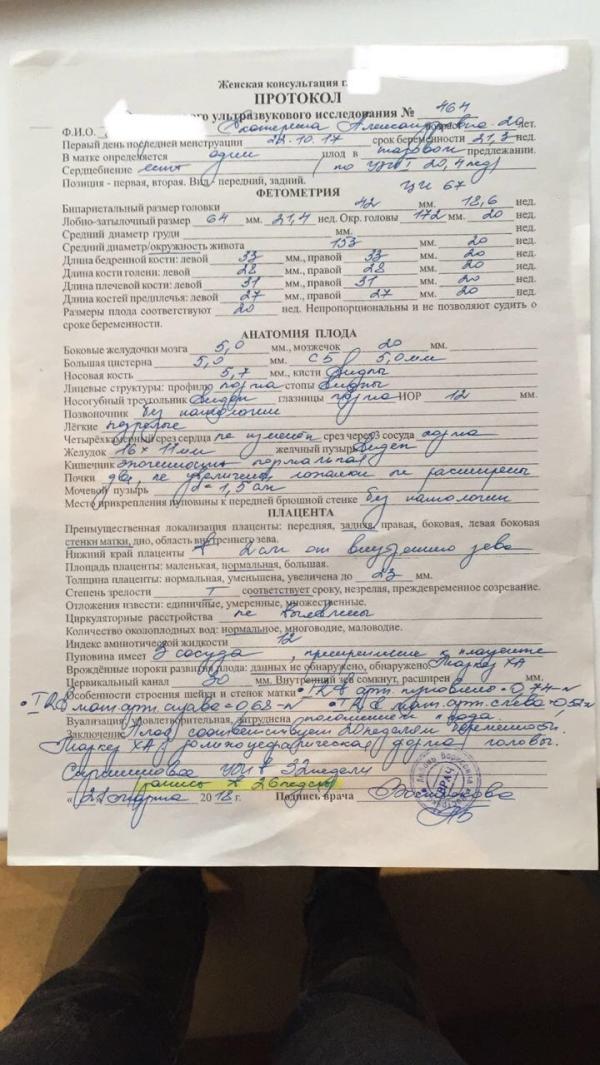 Женская консультация г.
ПРОТОКОЛ
ультразвукового исследования № 464
Ф.И.О. Екатерина Александровна 20 лет.
Первый день последней менструации 10.17 срок беременности 21,3 нед.
В матке определяется один плод в тазовом предлежании.
Сердцебиение есть (по УЗИ I 20,4 нед)
Позиция - первая, вторая. Вид - передний, задний. ЦИ 67
ФЕТОМЕТРИЯ
Бипариетальный размер головки 42 мм. 18,6 нед.
Лобно-затылочный размер 64 мм. 21,4 нед. Окр. головы 172 мм. 20 нед.
Средний диаметр груди мм. нед.
Средний диаметр/окружность живота 153 мм. 20 нед.
Длина бедренной кости: левой 33 мм., правой 33 мм. 20 нед.
Длина кости голени: левой 28 мм., правой 28 мм. 20 нед.
Длина плечевой кости: левой 31 мм., правой 31 мм. 20 нед.
Длина костей предплечья: левой 27 мм., правой 27 мм. 20 нед.
Размеры плода соответствуют 20 нед. Непропорциональны и не позволяют судить о
сроке беременности.
АНАТОМИЯ ПЛОДА
Боковые желудочки мозга 5,0 мм., мозжечок 20 мм.
Большая цистерна 5,0 мм. 5,0мм
Носовая кость 5,7 мм., кисти видны
Лицевые структуры: профиль норма стопы видны
Носогубный треугольник виден глазницы норма ИОР 12 мм.
Позвоночник без патологии
Лёгкие
Четырёхкамерный срез сердца не изменён срез через 3 сосуда норма
Желудок 16 × 11мм желчный пузырь виден
Кишечник эхогенность нормальная
Почки две, не увеличены лоханки не расширены
Мочевой пузырь d = 1,5 см
Место прикрепления пуповины к передней брюшной стенке без патологии
ПЛАЦЕНТА
Преимущественная локализация плаценты: передняя, задняя, правая, боковая, левая боковая
стенки матки, дно, область внутреннего зева.
Нижний край плаценты 2см от внутреннего зева
Площадь плаценты: маленькая, нормальная, большая.
Толщина плаценты: нормальная, уменьшена, увеличена до 23 мм.
Степень зрелости I соответствует сроку, незрелая, преждевременное созревание.
Отложения извести: единичные, умеренные, множественные.
Циркуляторные расстройства не выявлены
Количество околоплодных вод: нормальное, многоводие, маловодие.
Индекс амниотической жидкости 12
Пуповина имеет 3 сосуда, прикрепление к плаценте
Врождённые пороки развития плода: данных не обнаружено, обнаружено Маркер ХА
Цервикальный канал 30 мм. Внутренний зев сомкнут, расширен мм.
Особенности строения шейки и стенок матки • IR в арт. пуповины = 0,74 - N
• IR в мат. арт. справа = 0,68 - N • IR в мат. арт. слева = 0,52 N
Визуализация удовлетворительная, затруднена положением плода.
Заключение Плод соответствует 20 неделям беременности.
Маркер ХА: долихоцефалическая форма головы.
УЗИ в 32 недели
запись к 26 неделе
« 22 » марта 2018 г. Подпись врача
ВРАЧ